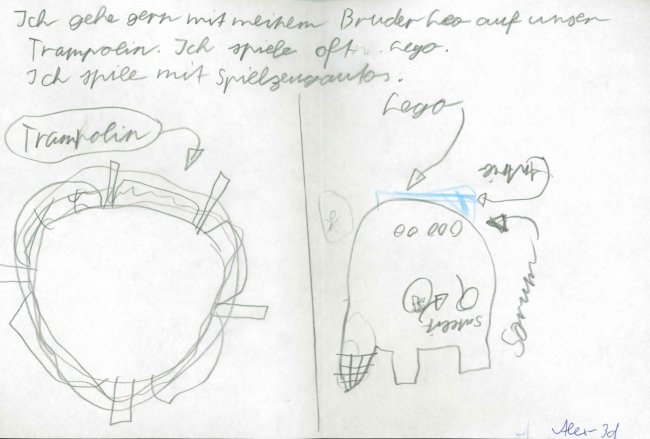 Ich gehe gern mit meinem Bruder Leo auf unser
Trampolin. Ich spiele oft Lego.
Ich spile mit Spielzeugautos.
Trampolin
Lego
Alex 3d